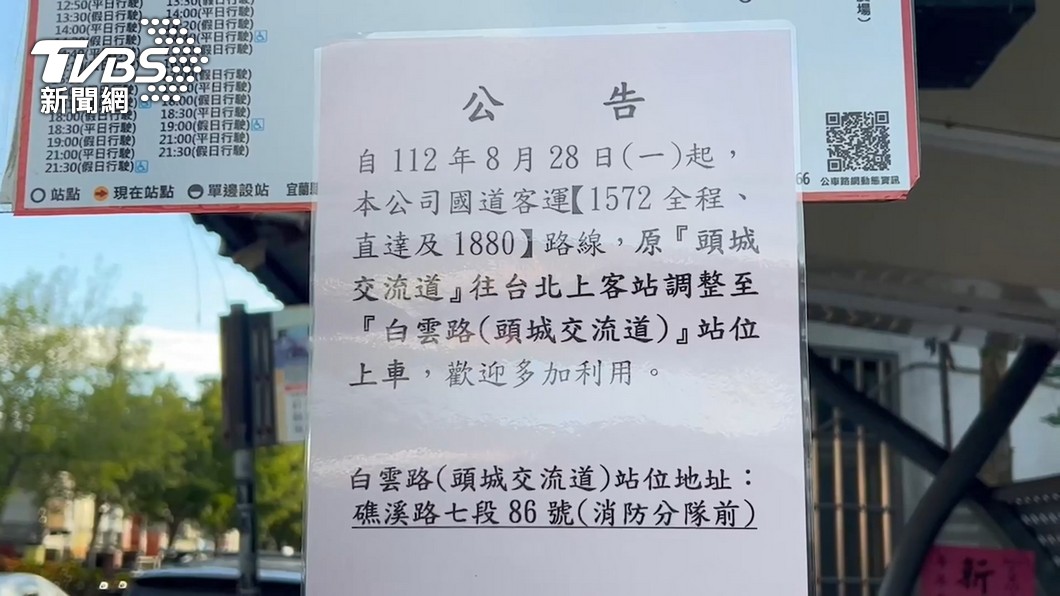 TVBS
新聞網
12:50(平日行駛)
13:30(假日行駛)
14:00(平日行駛)
18:00(平日行駛)
18:30(平日行駛)
19:00(假日行駛)
21:00(平日行駛)
21:30(假日行駛)
13:30(假日行駛)
14:00(平日行駛)
18:00(假日行駛)
18:30(平日行駛)
19:00(假日行駛)
21:00(平日行駛)
21:30(假日行駛)
站點
現在站點
單邊設站
公車路網動態資訊
公告
自112年8月28日(一)起，
本公司國道客運【1572全程、
直達及1880】路線，原『頭城
交流道』往台北上客站調整至
『白雲路(頭城交流道)』站位
上車，歡迎多加利用。
白雲路(頭城交流道)站位地址：
礁溪路七段86號(消防分隊前)
新